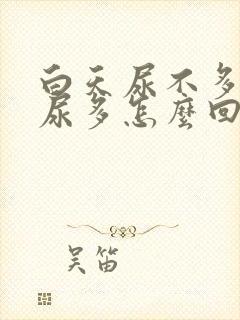 白天尿不多
尿多怎麼回
吴笛